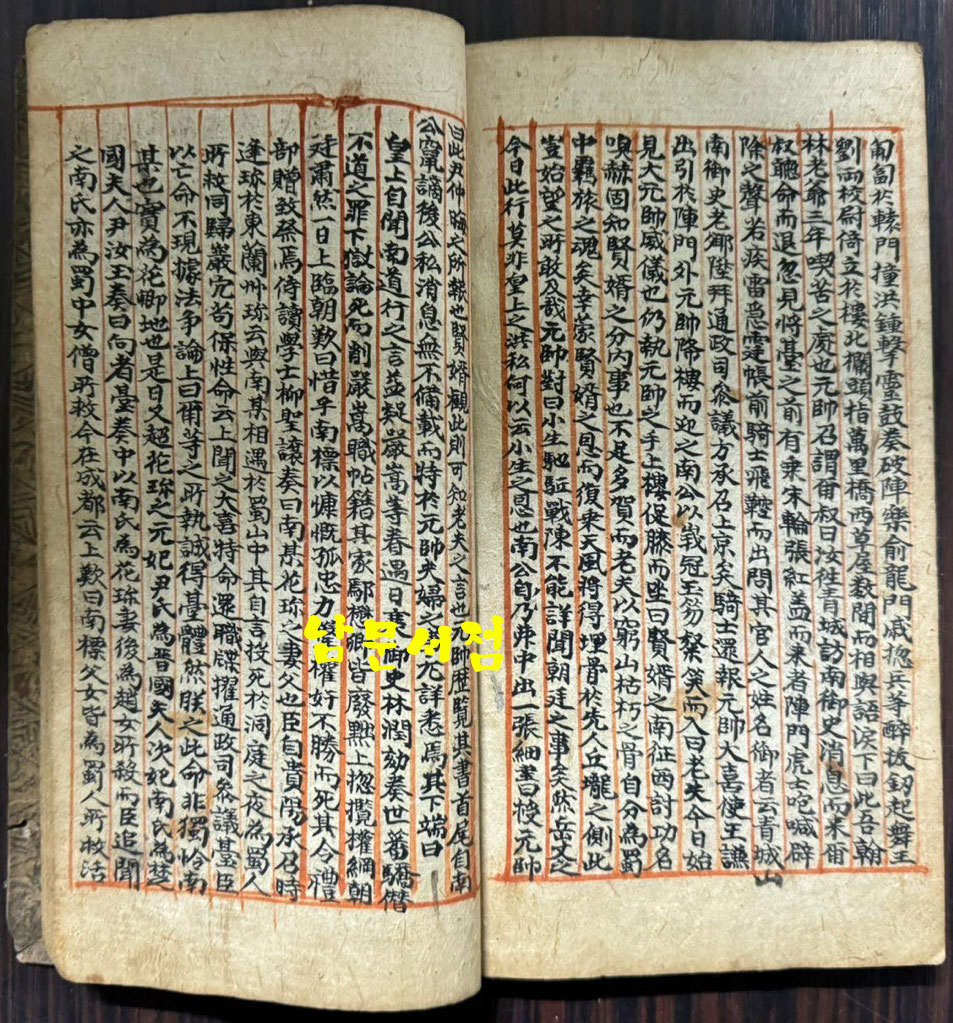 匍匐於轅門撞洪鍾擊靈鼓奏破陣樂俞龍門戚揔兵等醉拔釰起舞王
劉兩校尉倚立於樓北欄頭指萬里橋西草屋数間而相與語淚下曰此吾翰
林老爺三年喫苦之處也元帥召謂甯叔曰汝徃青城訪南御史消息而来甯
叔聽命而退忽見將臺之前有乗朱輪張紅盖而来者陣門虎士咆喊辟
除之聲若疾雷急霆帳前騎士飛鞚而出問其官人之姓名御者云青城山
南御史老爺陞拜通政司叅議方承召上京矣騎士還報元帥大喜使王謙
出引於陣門外元帥降樓而迎之南公以峩冠玉笏粲笑而入曰老夫今日始
見大元帥威儀也仍執元帥之手上樓促膝而坐曰賢婿之南征西討功名
烜赫固知賢婿之分內事也不足多賀而老夫以窮山枯朽之骨自分為蜀
中羈旅之魂矣幸蒙賢婿之恩而復乗天風將得埋骨於先人丘壠之側此
豈始望之所敢及哉元帥對曰小生馳駈戰陳不能詳聞朝廷之事矣然岳丈之
今日此行莫非皇上之洪私何以云小生之恩也南公自乃弁中出一張細書授元帥
曰此尹仲晦之所報也賢婿觀此則可知老夫之言也元帥歷覧其書首尾自南
公竄謫後公私消息無不備載而特於元帥夫婦之事尤詳悉焉其下端曰
皇上自聞南道行之言益疑嚴嵩等眷遇日衰御史林潤劾奏世蕃驕僭
不道之罪下獄論死而削嚴嵩職帖籍其家鄢懋卿皆廢黜上揔攬權綱朝
廷肅然一日上臨朝歎曰惜乎南標以慷慨孤忠力權奸不勝而死其令禮
部贈致祭焉侍讀學士柳聖讓奏曰南某花珎之妻父也臣自貴陽承召時
逢珎於東蘭州珎云與南某相遇於蜀山中其自言投死於洞庭之夜為蜀人
所救同歸巖穴苟保性命云上聞之大喜特命還職牒擢通政司叅議臺臣
以亡命不現據法争論上曰甯等之所執誠得臺體然朕之此命非獨以南
某也實為花卿地也是日又超花珎之元妃尹氏為晋國夫人次妃南氏為楚
國夫人尹汝玉奏曰向者臺奏中以南氏為花珎妻後為趙女所殺而臣追聞
之南氏亦為蜀中女僧所救今在成都云上歎曰南標父女皆為蜀人所救活
남문서점